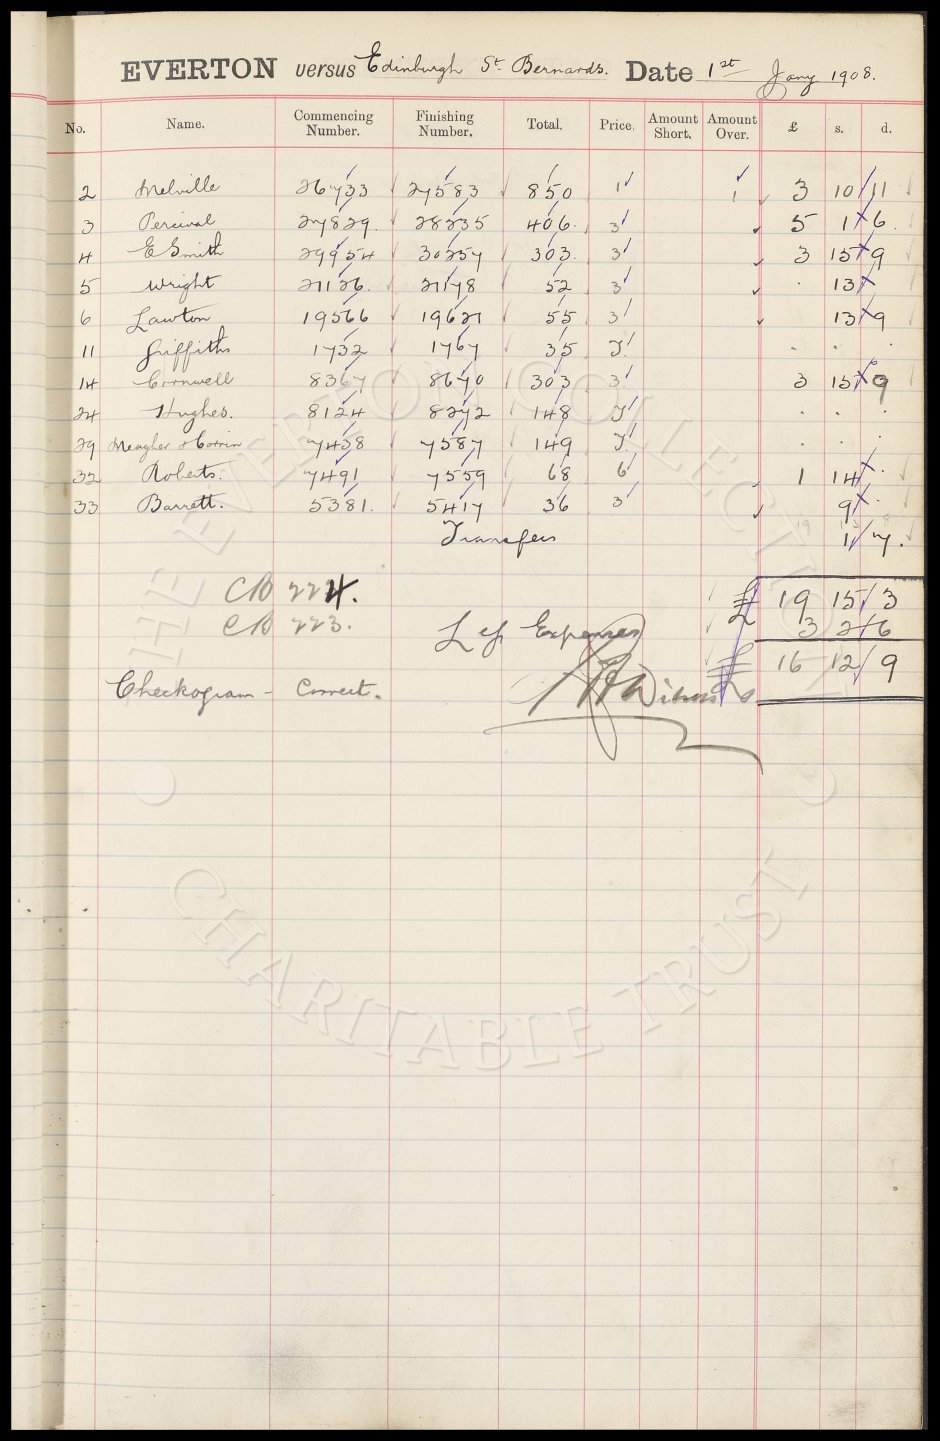 EVERTON versus Edinburgh St. Bernards. Date 1st Jany 1908.
No. Name. Commencing Number. Finishing Number. Total. Price. Amount Short. Amount Over. £ s. d.
2 Melville 26733 27583 850 1 1 3 10/11
3 Percival 27829. 28235 406. 3 5 1/6
4 E Smith 29954 30257 303. 3 3 15/9
5 Wright 21126. 21178 52 3 . 13/
6 Lawton 19566 19621 55 3 13/9
11 Griffiths 1732 1767 35 T. . . .
14 Cornwell 8367 8670 303 3. 3 15/9
24 Hughes. 8124 8272 148 T . . .
29 Meagher & Corrin 7438 7587 149 T. . . .
32 Roberts. 7491 7559 68 6 1 14/.
33 Barrett. 5381. 5417 36 3 9/.
Transfers 1/7.
CB 224. £ 19 15/3
CB 223. Less Expenses 3 2/6
£ 16 12/9
Checkogram - Correct.
THE EVERTON COLLECTION
CHARITABLE TRUST